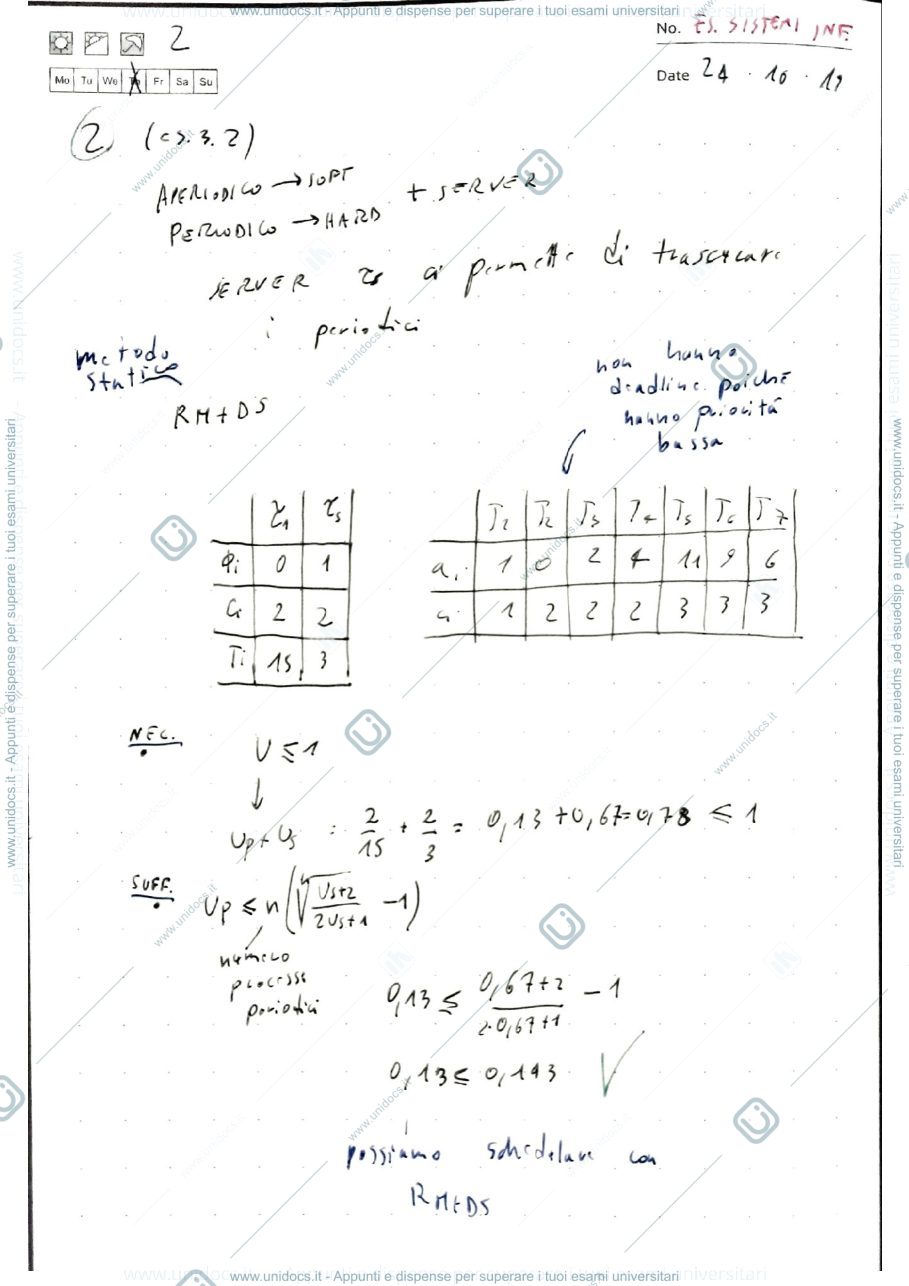 www.unidocs.it - Appunti e dispense per superare i tuoi esami universitari
No. ES. SISTEMI INF.
2
Mo Tu We Th Fr Sa Su
Date 24 . 10 . 19
2 (es. 3. 2)
APERIODICO → SOFT
PERIODICO → HARD + SERVER
SERVER τs ci permette di trascurare
i periodici
metodo
statico
RM+DS
non hanno
deadline poiché
hanno priorità
bassa
τ1 τs
Φi 0 1
Ci 2 2
Ti 15 3
T1 T2 T3 T4 T5 T6 T7
ai 1 0 2 4 11 9 6
ci 1 2 2 2 3 3 3
NEC.
U ≤ 1
↓
Up+Us = 2/15 + 2/3 = 0,13 + 0,67 = 0,78 ≤ 1
SUFF.
Up ≤ n(ⁿ√(Us+2 / 2Us+1) - 1)
numero
processi
periodici
0,13 ≤ 0,67+2 / 2·0,67+1 - 1
0,13 ≤ 0,143 √
possiamo schedulare con
RM+DS
www.unidocs.it - Appunti e dispense per superare i tuoi esami universitari